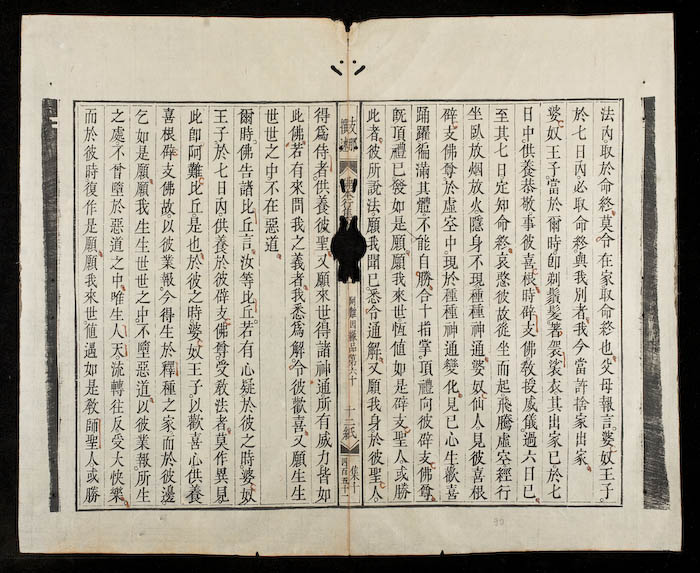 法內取於命終莫令在家取命終也父母報言婆奴王子
於七日內必取命終與我別者我今當許捨家出家
婆奴王子當於爾時卽剃鬚髮著袈裟衣其出家已於七
日中供養恭敬事彼喜根時辟支佛敎授威儀過六日已
至其七日定知命終哀愍彼故從坐而起飛騰虛空經行
坐臥放烟放火隱身不現種種神通婆奴仙人見彼喜根
辟支佛尊於虛空中現於種種神通變化見已心生歡喜
踊躍徧滿其體不能自勝合十指掌頂禮向彼辟支佛尊
旣頂禮已發如是願願我來世恆値如是辟支聖人或勝
此者彼所說法願我聞已悉令通解又願我身於彼聖人
阿難因緣品第六十
十二紙
集十
得爲侍者供養彼聖又願來世得諸神通所有威力皆如
此佛若有來問我之義者我悉爲解令彼歡喜又願生生
世世之中不在惡道
爾時佛告諸比丘言汝等比丘若有心疑於彼之時婆奴
王子於七日內供養於彼辟支佛尊受敎法者莫作異見
此卽阿難比丘是也於彼之時婆奴王子以歡喜心供養
喜根辟支佛故以彼業報今得生於釋種之家而於彼邊
乞如是願願我生生世世之中不墮惡道以彼業報所生
之處不曾墮於惡道之中唯生人天流轉往反受大快樂
而於彼時復作是願願我來世値遇如是敎師聖人或勝